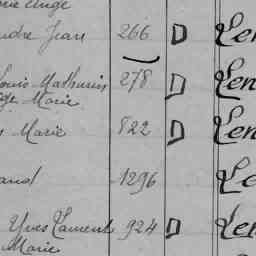 Ange
Jean 266 D Len
Louis Mathurin 278 D Len
Marie
Marie 822 D Len
and 1296 Le
Yves Laurent 924 D Len
Marie